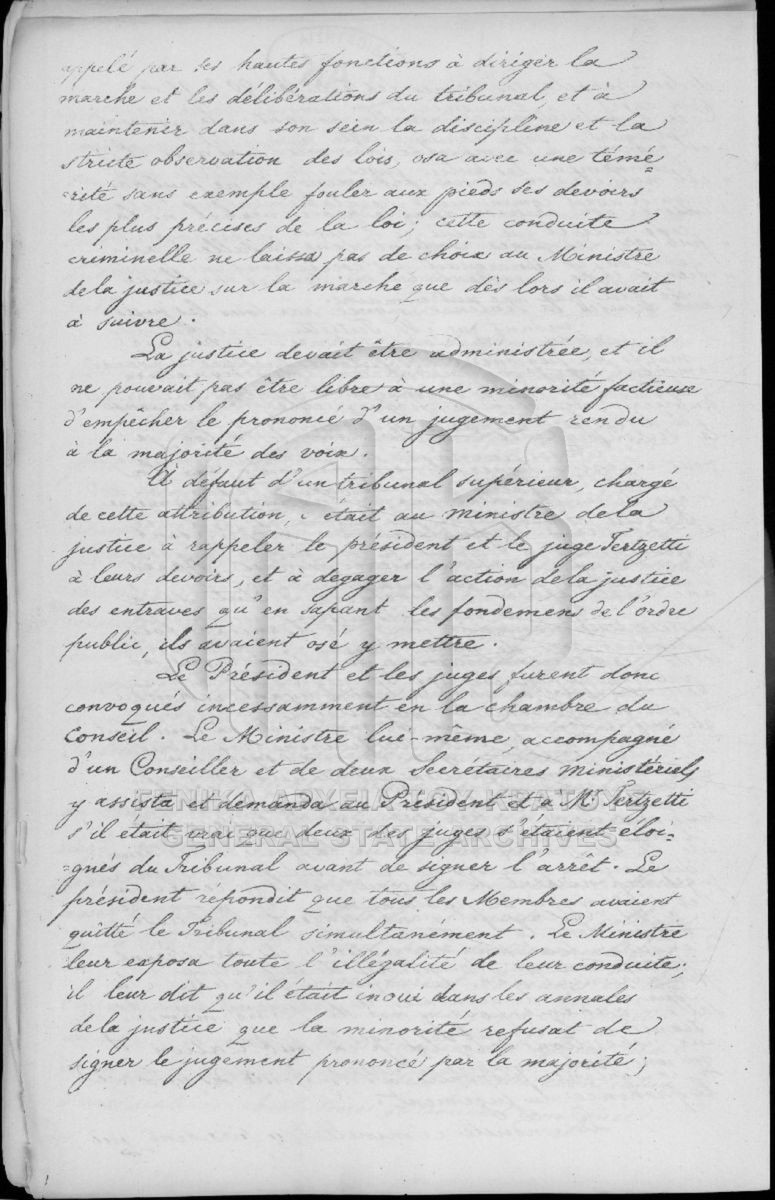 appelé par ses hautes fonctions à diriger la
marche et les délibérations du tribunal, et à
maintenir dans son sein la discipline et la
stricte observation des lois, osa avec une témé-
-rité sans exemple fouler aux pieds ses devoirs
les plus précises de la loi; cette conduite
criminelle ne laissa pas de choix au Ministre
de la justice sur la marche que dès lors il avait
à suivre.
La justice devait être administrée, et il
ne pouvait pas être libre à une minorité factieuse
d'empêcher le prononcé d'un jugement rendu
à la majorité des voix.
A défaut d'un tribunal supérieur, chargé
de cette attribution, c'était au ministre de la
justice à rappeler le président et le juge Tertzetti
à leurs devoirs, et à degager l'action de la justice
des entraves qu'en sapant les fondemens de l'ordre
public, ils avaient osé y mettre.
Le Président et les juges furent donc
convoqués incessamment en la chambre du
Conseil. Le Ministre lui-même, accompagné
d'un Conseiller et de deux Secrétaires ministériels
y assista et demanda au Président et a Mr Tertzetti
s'il était vrai que deux des juges s'étaient éloi-
-gnés du Tribunal avant de signer l'arrêt. Le
président répondit que tous les Membres avaient
quitté le Tribunal simultanément. Le Ministre
leur exposa toute l'illégalité de leur conduite;
il leur dit qu'il était inoui dans les annales
de la justice que la minorité refusat de
signer le jugement prononcé par la majorité;
ΓΕΝΙΚΑ ΑΡΧΕΙΑ ΤΟΥ ΚΡΑΤΟΥΣ
GENERAL STATE ARCHIVES